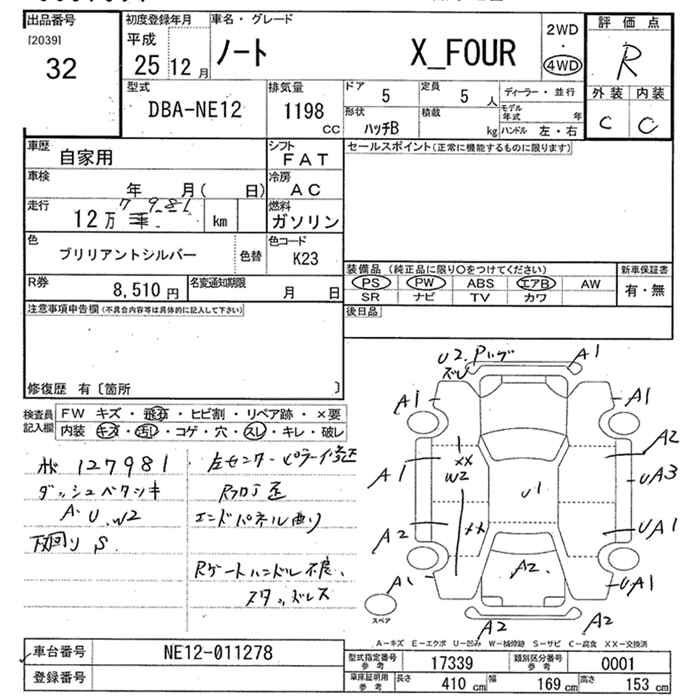 出品番号
[2039]
32
初度登録年月
平成
25 12 月
車名・グレード
ノート X_FOUR
2WD
・
4WD
評価点
R
外装 内装
C C
型式
DBA-NE12
排気量
1198
CC
ドア
5
定員
5 人
ディーラー・並行
形状
ハッチB
積載
kg
モデル年式
年
ハンドル 左・右
車歴
自家用
シフト
FAT
セールスポイント(正常に機能するものに限ります)
車検
年 月( 日)
冷房
AC
走行
12万 7 981
km
燃料
ガソリン
色
ブリリアントシルバー
色替
色コード
K23
R券
8,510 円
名変通知期限
月 日
装備品 (純正品に限り○をつけてください)
新車保証書
PS PW ABS エアB AW
有・無
SR ナビ TV カワ
後日品
注意事項申告欄(不具合内容等は具体的に記入して下さい)
修復歴 有〔箇所 〕
検査員記入欄
FW キズ・飛石・ヒビ割・リペア跡・×要
内装 キズ・汚レ・コゲ・穴・スレ・キレ・破レ
127981
左センターピラー修正
ダッシュベタツキ
A U W2
エンドパネル曲り
下回り S
Rゲートハンドル不良、
スタッドレス
U2 A1
ズレ
A1 A1
A1 XX W2 A2
U1 UA3
A2 XX UA1
A1 A2 UA1
スペア
A2 A2
A-キズ E-エクボ U-凹み W-補修跡 S-サビ C-腐食 XX-交換済
車台番号
NE12-011278
登録番号
型式指定番号
参考
17339
類別区分番号
参考
0001
車庫証明用
参考
長さ
410 cm
幅
169 cm
高さ
153 cm